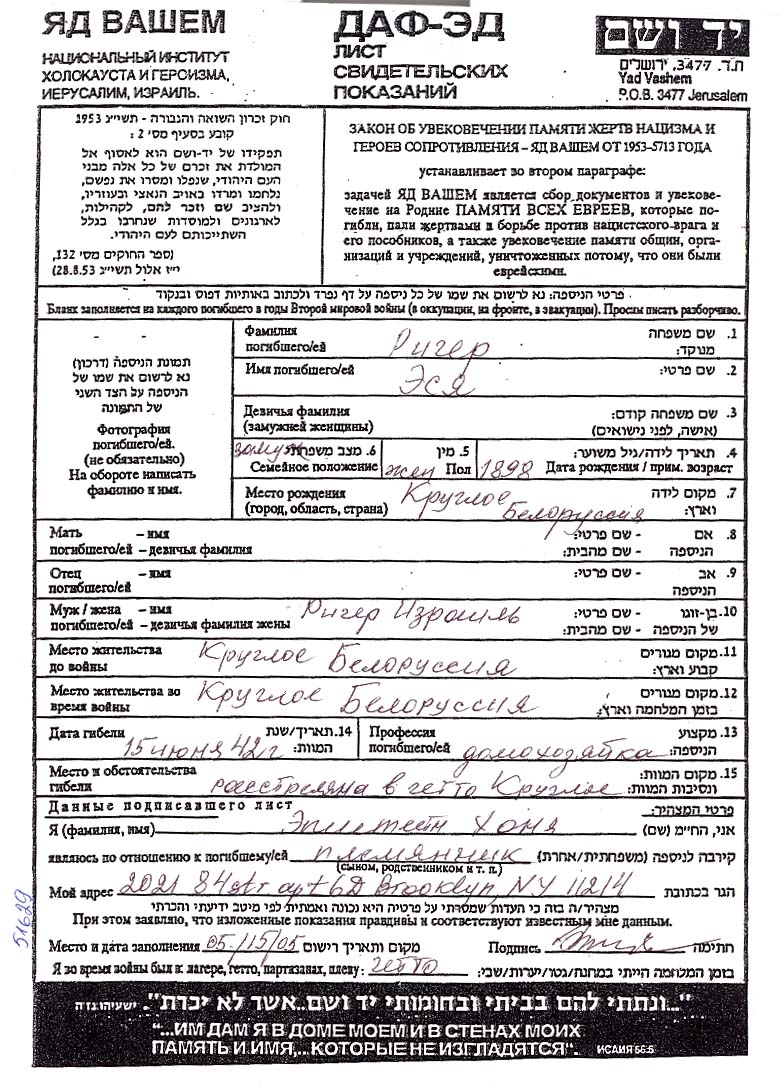 ЯД ВАШЕМ
НАЦИОНАЛЬНЫЙ ИНСТИТУТ
ХОЛОКАУСТА И ГЕРОИЗМА,
ИЕРУСАЛИМ, ИЗРАИЛЬ.
ДАФ-ЭД
ЛИСТ
СВИДЕТЕЛЬСКИХ
ПОКАЗАНИЙ
יד ושם
ת.ד. 3477, ירושלים
Yad Vashem
P.O.B. 3477 Jerusalem
חוק זכרון השואה והגבורה - תשי״ג 1953
קובע בסעיף מס׳ 2 :
תפקידו של יד-ושם הוא לאסוף אל
המולדת את זכרם של כל אלה מבני
העם היהודי, שנפלו ומסרו את נפשם,
נלחמו ומרדו באויב הנאצי ובעוזריו,
ולהציב שם וזכר להם, לקהילות,
לארגונים ולמוסדות שנחרבו בגלל
השתייכותם לעם היהודי.
(ספר החוקים מס׳ 132,
י״ז אלול תשי״ג 28.8.53)
ЗАКОН ОБ УВЕКОВЕЧЕНИИ ПАМЯТИ ЖЕРТВ НАЦИЗМА И
ГЕРОЕВ СОПРОТИВЛЕНИЯ – ЯД ВАШЕМ ОТ 1953-5713 ГОДА
устанавливает во втором параграфе:
задачей ЯД ВАШЕМ является сбор документов и увекове-
чение на Родине ПАМЯТИ ВСЕХ ЕВРЕЕВ, которые по-
гибли, пали жертвами в борьбе против нацистского врага и
его пособников, а также увековечение памяти общин, орга-
низаций и учреждений, уничтоженных потому, что они были
еврейскими.
פרטי הניספה: נא לרשום את שמו של כל ניספה על דף נפרד ולכתוב באותיות דפוס ובנקוד
Бланк заполняется на каждого погибшего в годы Второй мировой войны (в оккупации, на фронте, в эвакуации). Просим писать разборчиво.
תמונת הניספה (דרכון)
נא לרשום את שמו של
הניספה על הצד השני
של התמונה
Фотография
погибшего/ей.
(не обязательно)
На обороте написать
фамилию и имя.
Фамилия
погибшего/ей
Ригер
1. שם משפחה
מנוקד:
Имя погибшего/ей
Эся
2. שם פרטי:
Девичья фамилия
(замужней женщины)
3. שם משפחה קודם:
(אישה, לפני נישואים)
замуж
6. מצב משפחתי
Семейное положение
5. מין
жен Пол
4. תאריך לידה/גיל משוער:
1898 Дата рождения / прим. возраст
Место рождения
(город, область, страна)
Круглое
Белоруссия
7. מקום לידה
וארץ:
Мать – имя
погибшего/ей – девичья фамилия
8. אם - שם פרטי:
הניספה - שם מהבית:
Отец – имя
погибшего/ей
9. אב - שם פרטי:
הניספה
Муж / жена – имя
погибшего/ей – девичья фамилия жены
Ригер Израиль
10. בן-זוגו - שם פרטי:
של הניספה - שם מהבית:
Место жительства
до войны
Круглое Белоруссия
11. מקום מגורים
קבוע וארץ:
Место жительства во
время войны
Круглое Белоруссия
12. מקום מגורים
בזמן המלחמה וארץ:
Дата гибели
15 июня 42 г
14. תאריך/שנת
המוות:
Профессия
погибшего/ей
домохозяйка
13. מקצוע
הניספה:
Место и обстоятельства
гибели
расстреляна в гетто Круглое
15. מקום המוות:
ונסיבות המוות:
Данные подписавшего лист
פרטי המצהיר:
Я (фамилия, имя) Эпштейн Хоня אני, החי״מ (שם)
являюсь по отношению к погибшему/ей племянник קירבה לניספה (משפחתית/אחרת)
(сыном, родственником и т. п.)
Мой адрес 2021 84 str apt 6D Brooklyn, NY 11214 הגר בכתובת
מצהיר/ה בזה כי העדות שמסרתי על פרטיה היא נכונה ואמתית לפי מיטב ידיעתי והכרתי
При этом заявляю, что изложенные показания правдивы и соответствуют известным мне данным.
Место и дата заполнения 05/15/05 מקום ותאריך רישום Подпись חתימה
Я во время войны был в: лагере, гетто, партизанах, плену: гетто בזמן המלחמה הייתי במחנה/גטו/יערות/שבי:
51629
"...ונתתי להם בביתי ובחומותי יד ושם...אשר לא יכרת". ישעיהו נו ה
"...ИМ ДАМ Я В ДОМЕ МОЕМ И В СТЕНАХ МОИХ
ПАМЯТЬ И ИМЯ,... КОТОРЫЕ НЕ ИЗГЛАДЯТСЯ". ИСАИЯ 56:5